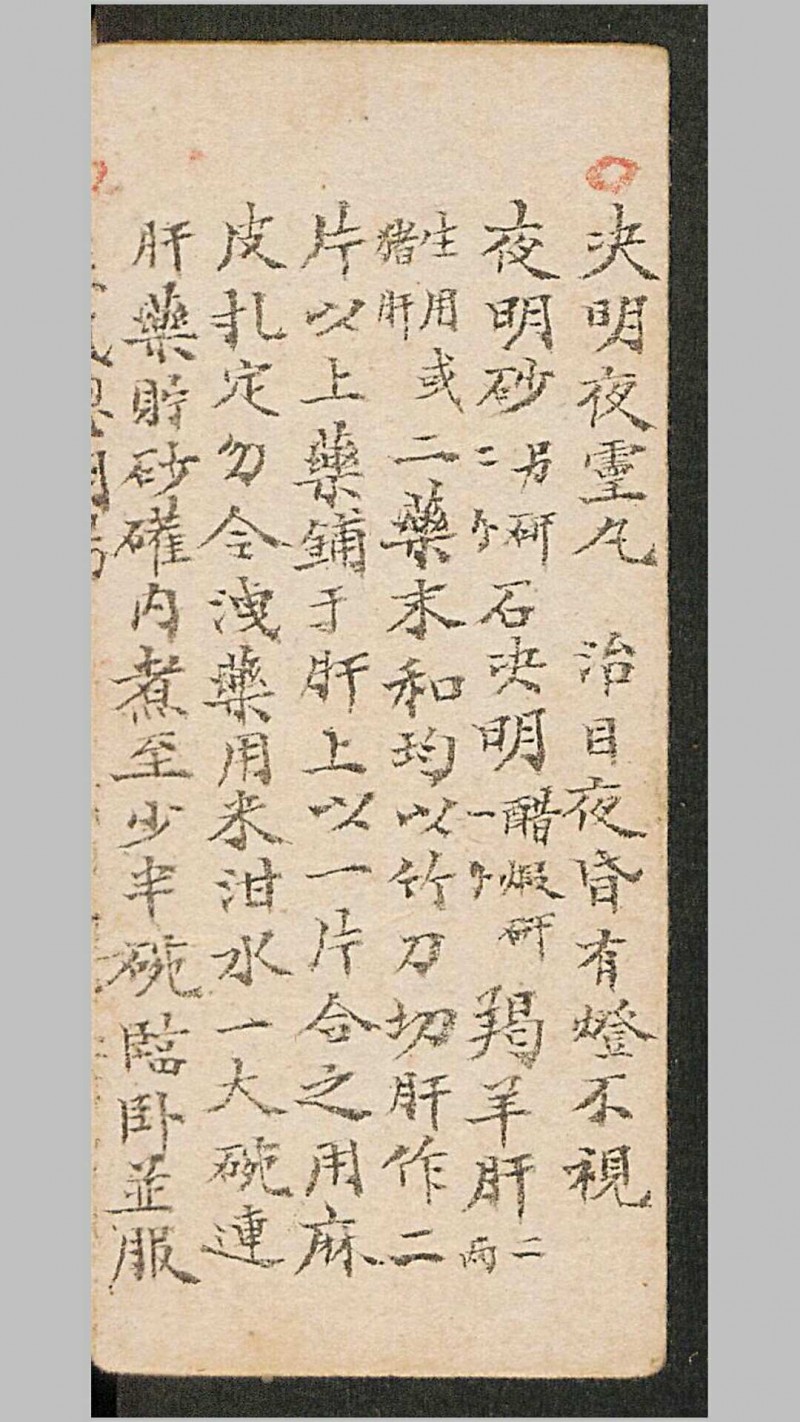 决明夜靈丸　治目夜昏有燈不視
夜明砂二个另研石决明一个醋煅研羯羊肝二兩
生用或猪肝二藥末和均以竹刀切肝作二
片以上藥鋪于肝上以一片合之用麻
皮扎定勿令洩藥用米泔水一大碗連
肝藥貯砂礶内煮至少半碗臨卧並服